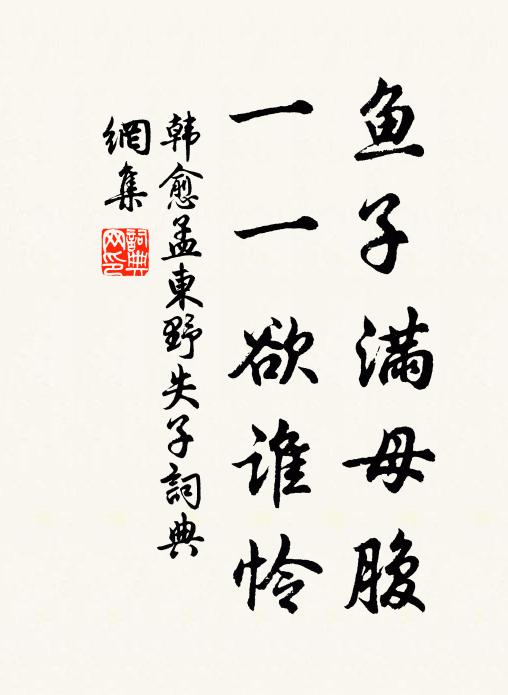 鱼子满母腹
一一欲谁怜
韩愈孟東野失子詞典
網集
詞典
网印